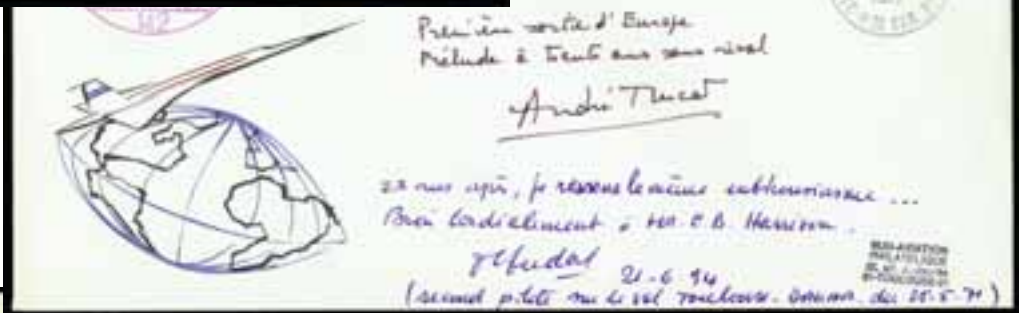 M2
Première sortie d'Europe
Prélude à trente ans sans rival
André Turcat
23 ans après, je ressens le même enthousiasme ...
Bien cordialement à Mr. C.B. Harrison.
21-6-94
(second pilote sur le vol Toulouse - du 25-5-71)